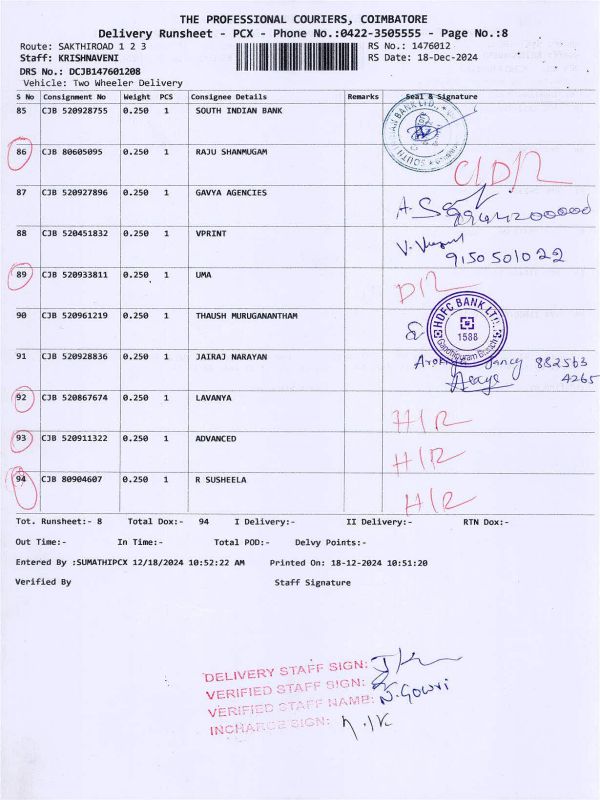 THE PROFESSIONAL COURIERS, COIMBATORE
Delivery Runsheet - PCX - Phone No.:0422-3505555 - Page No.:8
Route: SAKTHIROAD 1 2 3 RS No.: 1476012
Staff: KRISHNAVENI RS Date: 18-Dec-2024
DRS No.: DCJB147601208
Vehicle: Two Wheeler Delivery
S No Consignment No Weight PCS Consignee Details Remarks Seal & Signature
85 CJB 520928755 0.250 1 SOUTH INDIAN BANK
86 CJB 80605095 0.250 1 RAJU SHANMUGAM
87 CJB 520927896 0.250 1 GAVYA AGENCIES
88 CJB 520451832 0.250 1 VPRINT
9150501022
89 CJB 520933811 0.250 1 UMA
D/R
90 CJB 520961219 0.250 1 THAUSH MURUGANANTHAM
HDFC BANK LTD.
1588
91 CJB 520928836 0.250 1 JAIRAJ NARAYAN
882563
4265
92 CJB 520867674 0.250 1 LAVANYA
H/R
93 CJB 520911322 0.250 1 ADVANCED
H/R
94 CJB 80904607 0.250 1 R SUSHEELA
H/R
Tot. Runsheet:- 8 Total Dox:- 94 I Delivery:- II Delivery:- RTN Dox:-
Out Time:- In Time:- Total POD:- Delvy Points:-
Entered By :SUMATHIPCX 12/18/2024 10:52:22 AM Printed On: 18-12-2024 10:51:20
Verified By Staff Signature
DELIVERY STAFF SIGN:
VERIFIED STAFF SIGN:
VERIFIED STAFF NAME: N.Gowri
INCHARGE SIGN: